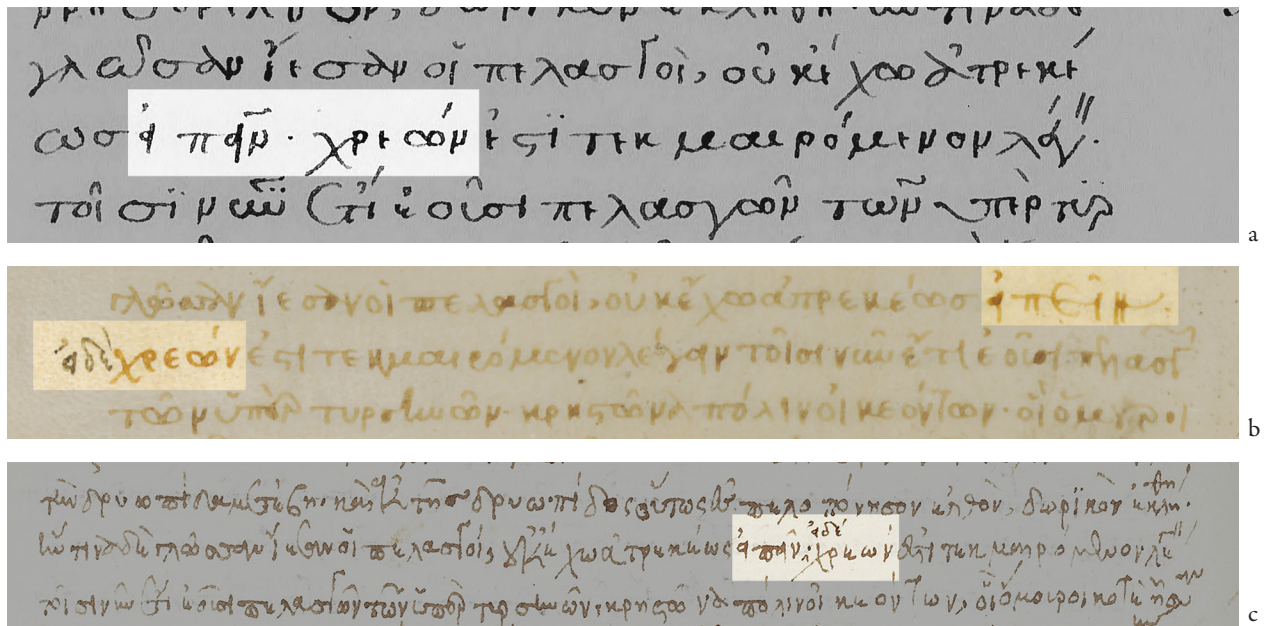 γλῶσσαν ἵεσαν οἱ πελασγοὶ, οὐκ ἔχω ἀτρεκέ
ως εἰπεῖν· χρεών ἐστι τεκμαιρόμενον λέγειν·
τοῖσι νῦν ἔτι ἐοῦσι πελασγῶν τῶν ὑπὲρ τυρ
a
γλῶσσαν ἵεσαν οἱ πελασγοὶ, οὐκ ἔχω ἀτρεκέως εἰπεῖν.
εἰ δὲ χρεών ἐστι τεκμαιρόμενον λέγειν τοῖσι νῦν ἔτι ἐοῦσι
τῶν ὑπὲρ τυρσηνῶν κρηστῶνα πόλιν οἰκεόντων· οἳ ὅμουροι
b
δρυοπίδος πελοπόννησον ἐλθὸν, δωρικὸν ἐκλήθη·
ἥντινα δὲ γλῶσσαν ἵεσαν οἱ πελασγοὶ, οὐκ ἔχω ἀτρεκέως εἰπεῖν· εἰ δὲ χρεών ἐστι τεκμαιρόμενον λέγειν
τοῖσι νῦν ἔτι ἐοῦσι πελασγῶν τῶν ὑπὲρ τυρσηνῶν, κρηστῶνα πόλιν οἰκεόντων, οἳ ὅμουροι κοτὲ ἦσαν
c